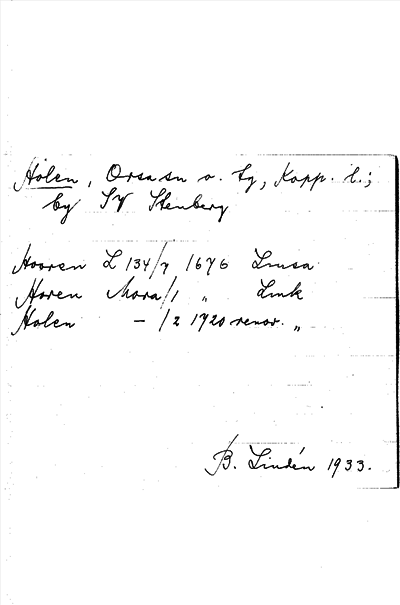 Holen, Orsa sn o. tg, Kopp. l.;
by SV Stenberg
Hooren L 134/7 1676 Lmsa
Horen Mora/1 „ Lmk
Holen — /2 1720 renov. „
B. Lindén 1933.